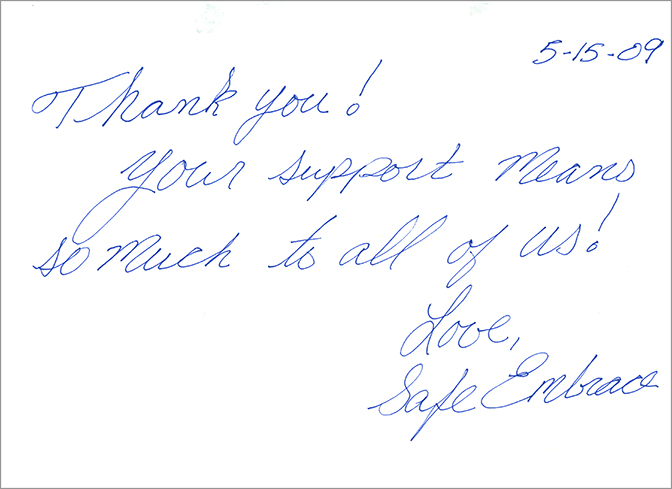 5-15-09
Thank you!
Your support means
so much to all of us!
Love,
Safe Embrace